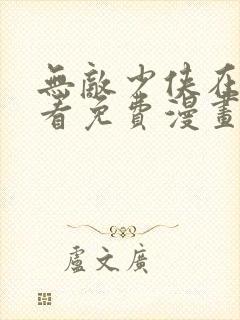 無敵少俠在
看免費漫畫
盧文廣